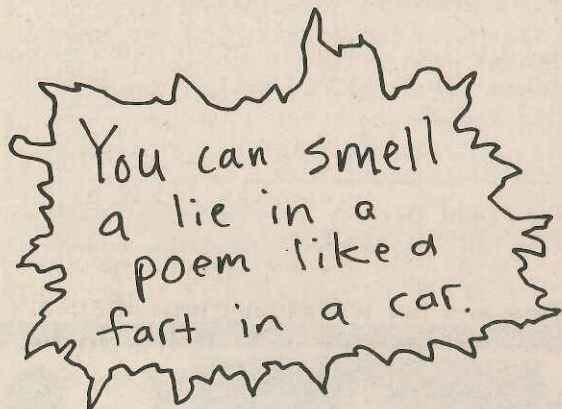 You can smell
a lie in a
poem like a
fart in a car.